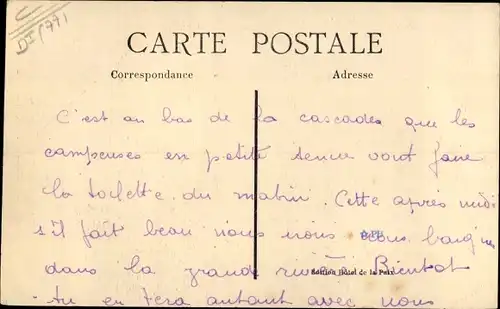 CARTE POSTALE
Correspondance
Adresse
C'est au bas de la cascade que les
campeuses en petite tenue vont faire
la toilette du matin. Cette après midi
s'il fait beau nous nous
dans la grande rivière. Bientot
Edition Hôtel de la Paix
tu en feras autant avec nous